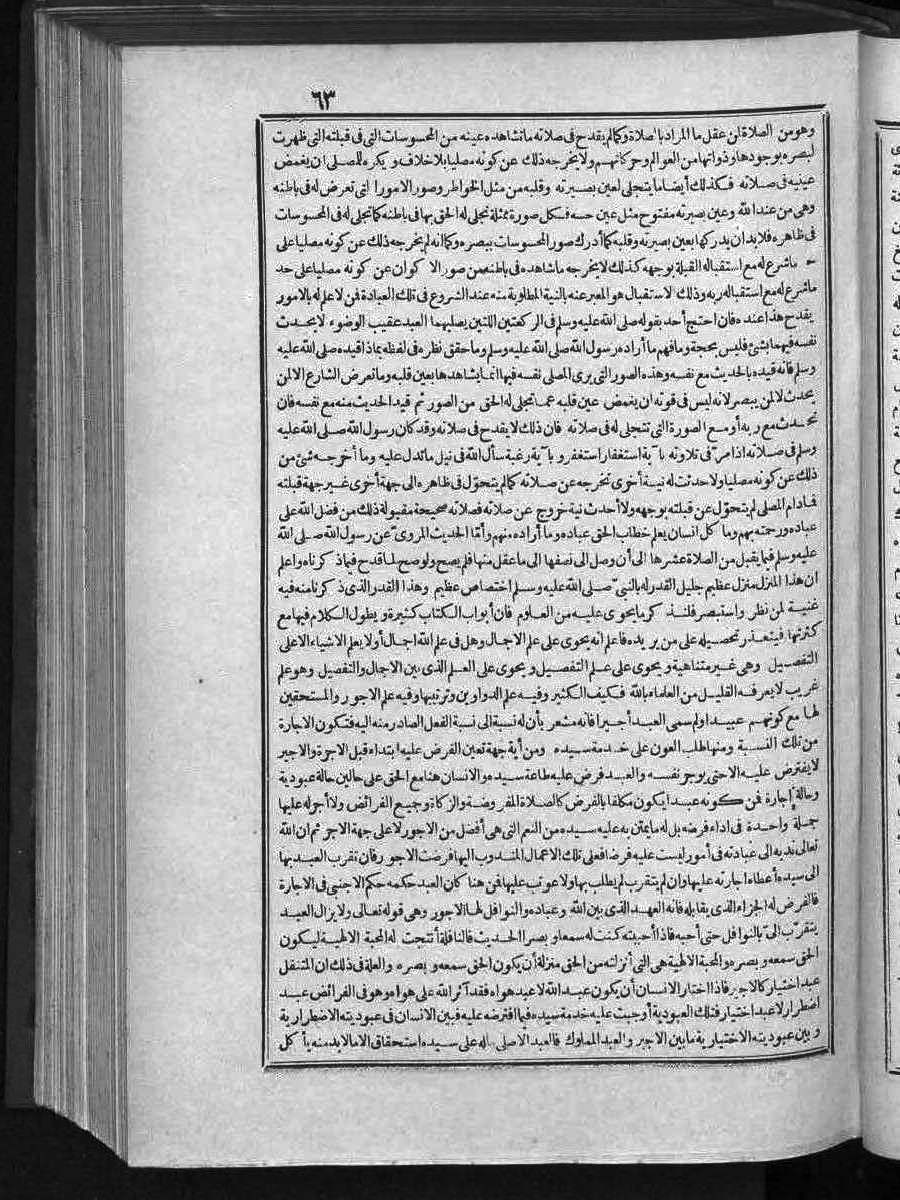 ٦٣
وهو من الصلاة لمن عقل ما المراد بالصلاة وكما لم يقدح فى صلاته ما تشاهده عينه من المحسوسات التى فى قبلته التى ظهرت
لبصره بوجودها وذواتها من العوالم وحركاتهم ولا يخرجه ذلك عن كونه مصليا بلا خلاف ويكره للمصلى ان يغمض
عينيه فى صلاته فكذلك أيضا ما يتجلى لعين بصيرته وقلبه من مثل الخواطر وصور الامور التى تعرض له فى باطنه
وهى من عند الله وعين بصيرته مفتوح مثل عين حسه فكل صورة ممثلة تجلى له الحق بها فى باطنه كما تجلى له فى المحسوسات
فى ظاهره فلا بد ان يدركها بعين بصيرته وقلبه كما أدرك صور المحسوسات ببصره وكما انه لم يخرجه ذلك عن كونه مصليا على
ما شرع له مع استقباله القبلة بوجهه كذلك لا يخرجه ما شاهده فى باطنه من صور الاكوان عن كونه مصليا على حد
ما شرع له مع استقباله ربه وذلك الاستقبال هو المعبر عنه بالنية المطلوبة منه عند الشروع فى تلك العبادة فمن لا علم له بالامور
يقدح هذا عنده فان احتج أحد بقوله صلى الله عليه وسلم فى الركعتين اللتين يصليهما العبد عقيب الوضوء لا يحدث
نفسه فيهما بشئ فليس بحجة وما فهم ما أراده رسول الله صلى الله عليه وسلم وما حقق نظره فى لفظه بماذا قيده صلى الله عليه
وسلم فانه قيده بالحديث مع نفسه وهذه الصور التى يرى المصلى نفسه فيها انما يشاهدها بعين قلبه وما تعرض الشارع الا لمن
يحدث لا لمن يبصر لانه ليس فى قوته ان يغمض عين قلبه عما تجلى له الحق من الصور ثم قيد الحديث منه مع نفسه فان
تحدث مع ربه أو مع الصورة التى تتجلى له فى صلاته فان ذلك لا يقدح فى صلاته وقد كان رسول الله صلى الله عليه
وسلم فى صلاته اذا مر فى تلاوته بآية استغفار استغفر وبآية رغبة سأل الله فى نيل ما تدل عليه وما أخرجه شئ من
ذلك عن كونه مصليا ولا حدثت له نية أخرى تخرجه عن صلاته كما لم يتحول فى ظاهره الى جهة أخرى غير جهة قبلته
فمادام المصلى لم يتحول عن قبلته بوجهه ولا أحدث نية خروج عن صلاته فصلاته صحيحة مقبولة ذلك من فضل الله على
عباده ورحمته بهم وما كل انسان يعلم خطاب الحق عباده وما أراده منهم وأما الحديث المروى عن رسول الله صلى الله
عليه وسلم فيما يقبل من الصلاة عشرها الى أن وصل الى نصفها الى ما عقل منها فلم يصح ولو صح لما قدح فيما ذكرناه واعلم
ان هذا المنزل منزل عظيم جليل القدر له بالنبى صلى الله عليه وسلم اختصاص عظيم وهذا القدر الذى ذكرنا منه فيه
غنية لمن نظر واستبصر فلنذكر ما يحوى عليه من العلوم فان أبواب الكتاب كثيرة ويطول الكلام فيها مع
كثرتها فيتعذر تحصيله على من يريده فاعلم انه يحوى على علم الاجمال وهل فى علم الله اجمال أو لا يعلم الاشياء الا على
التفصيل وهى غير متناهية ويحوى على علم التفصيل ويحوى على العلم الذى بين الاجمال والتفصيل وهو علم
غريب لا يعرفه القليل من العلماء بالله فكيف الكثير وفيه علم الدواوين وترتيبها وفيه علم الاجور والمستحقين
لها مع كونهم عبيدا ولم سمى العبد أجيرا فانه مشعر بأن له نسبة الى نسبة الفعل الصادر منه اليه فتكون الاجارة
من تلك النسبة ومنها طلب العون على خدمة سيده ومن أية جهة تعين الفرض عليه ابتداء قبل الاجرة والاجير
لا يفترض عليه الا حتى يوجر نفسه والعبد فرض عليه طاعة سيده والانسان هنا مع الحق على حالين حالة عبودية
وحالة إجارة فمن كونه عبدا يكون مكلفا بالفرض كالصلاة المفروضة والزكاة وجميع الفرائض ولا أجر له عليها
جملة واحدة فى اداء فرضه بل له ما يمتن به عليه سيده من النعم التى هى أفضل من الاجور لا على جهة الاجر ثم ان الله
تعالى ندبه الى عبادته فى أمور ليست عليه فرضا فعلى تلك الاعمال المندوب اليها فرضت الاجور فان تقرب العبد بها
الى سيده أعطاه اجارته عليها وان لم يتقرب لم يطلب بها ولا عوتب عليها فمن هنا كان العبد حكمه حكم الاجنبى فى الاجارة
فالفرض له الجزاء الذى يقابله فانه العهد الذى بين الله وعباده والنوافل لها الاجور وهى قوله تعالى ولا يزال العبد
يتقرب الى بالنوافل حتى أحبه فاذا أحببته كنت له سمعا وبصرا الحديث فالنافلة أنتجت له المحبة الالهية ليكون
الحق سمعه وبصره والمحبة الالهية هى التى أنزلته من الحق منزلة أن يكون الحق سمعه وبصره والعلة فى ذلك ان المتنفل
عبد اختيار كالاجير فاذا اختار الانسان أن يكون عبد الله لا عبد هواه فقد آثر الله على هواه وهو فى الفرائض عبد
اضطرار لا عبد اختيار فتلك العبودية أوجبت عليه خدمة سيده فيما افترضه عليه فبين الانسان فى عبوديته الاضطرارية
وبين عبوديته الاختيارية ما بين الاجير والعبد المملوك فالعبد الاصلى ماله على سيده استحقاق الا ما لا بد منه يأكل